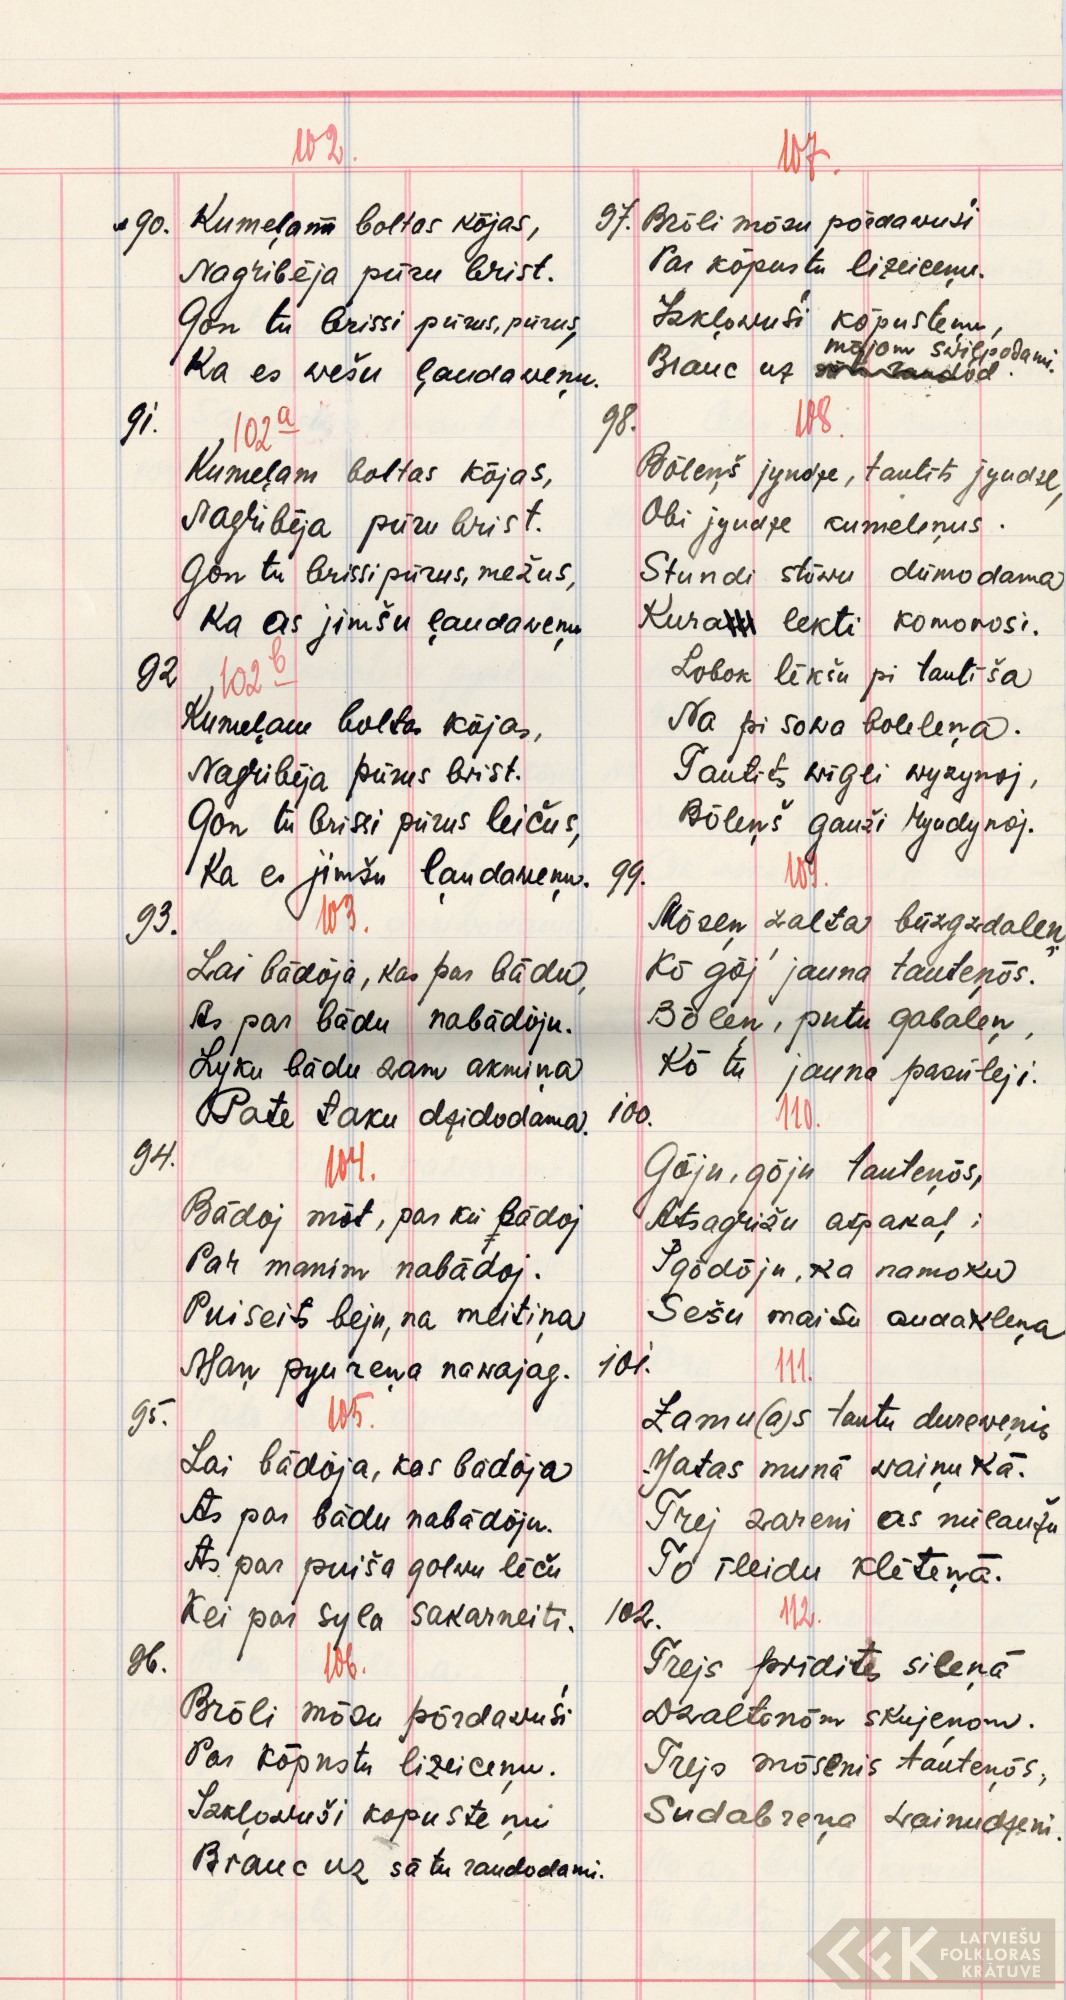 102.
90. Kumeļam boltas kōjas,
Nagribēja pūru brist.
Gon tu brissi pūrus, pūrus,
Ka es wešu ļaudaweņu.
91.
102a
Kumeļam boltas kōjas,
Nagribēja pūru brist.
Gon tu brissi pūrus, mežus,
Ka as jimšu ļaudaweņu
92
102b
Kumeļam boltas kōjas,
Nagribēja pūrus brist.
Gon tu brissi pūrus leičus,
Ka es jimšu ļaudaweņu.
93.
103.
Lai bādōja, kas par bādu,
As par bādu nabādōju.
Lyku bādu zam akmiņa
Pate taku dzidodama.
94.
104.
Bādoj mōt, par kū bādoj
Par manim nabādoj.
Puiseits beju, na meitiņa
Maņ pyureņa nawajag.
95.
105.
Lai bādōja, kas badōja
As par bādu nabādōju.
As par puiša golwu lēču
Kei par syla sakarneiti.
96.
106.
Brōli mōsu pōrdawuši
Par kōpustu lizeiceņu.
Izkļowuši kopusteņu
Brauc uz sātu raudodami.
107.
97. Brōli mōsu pōrdawuši
Par kōpustu lizeiceņu.
Izkļowuši kōpusteņu,
mōjom swiļpodami.
Brauc uz
98.
108.
Bōleņš jyudze, tautīts jyudze,
Obi jyudze kumeleņus.
Stundi stōwu dūmodama
Kura lekti komonosi.
Lobok lēkšu pi tautīša
Na pi sowa boleleņa.
Tautīts wīgli wyzynoj,
Bōleņš gauži
99.
109.
Mōseņ zalta būzgzdaleņ
Kō gōj' jauna tauteņōs.
Bōleņ, putu gabaleņ,
Kō tu jauna pasūleji.
100.
110.
Gōju, gōju tauteņōs,
Atsagrižu atpakaļ;
Igōdōju, ka namoku
Sešu maišu audakleņa
101.
111.
Zamu(a)s tautu durewenis
Matas munā waiņukā.
Trej zareni as nūlaužu
To īleidu klēteņā.
102.
112.
Trejs prīdites sileņā
Dzaltonōm skujeņom.
Trejs mōsenis tauteņōs,
Sudabreņa wainudzeni.
LATVIEŠU
FOLKLORAS
KRĀTUVE